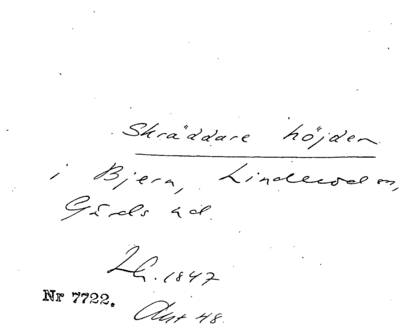 Skräddare höjden
i Bjern, Linderöd sn,
Gärds hd.
Lh. 1847
Nr 7722.
Akt 48.